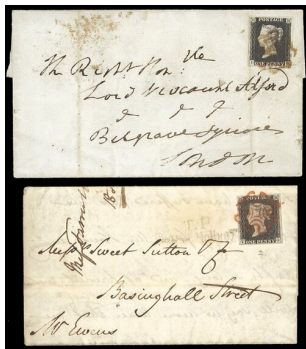 POSTAGE
ONE PENNY
The Right Hon ble
Lord Viscount Alford
Belgrave Square
London
POSTAGE
Messrs Sweet Sutton & Co
Basinghall Street
Mr Ewens